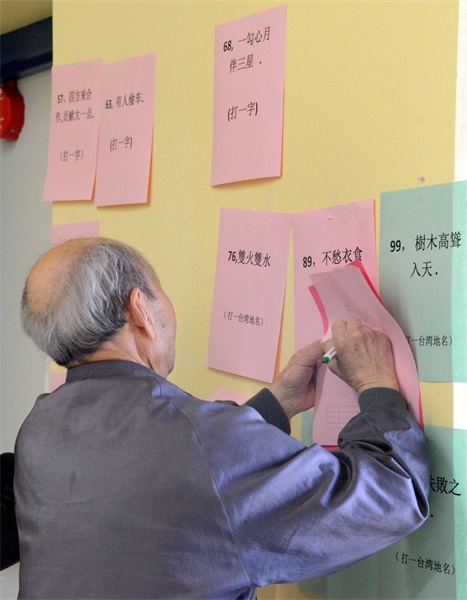 57. 四方来合
作,贡献大一点.
(打一字)
63, 有人偷车.
(打一字)
68, 一勾心月
伴三星 .
(打一字)
76,雙火雙水
(打一台湾地名)
89, 不愁衣食
99, 樹木高聳
入天 .
打一台湾地名)
失敗之
.
(打一台湾地名)